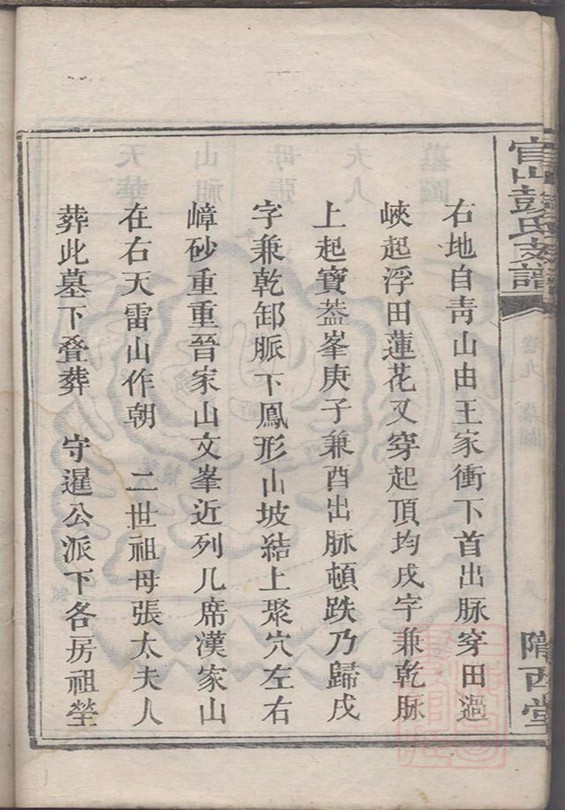 官山彭氏支譜
卷九 墓圖
隴西堂
右地自靑山由王家衝下首出脉穿田過
峽起浮田蓮花又穿起頂均戌字兼乾脉
上起寶葢峯庚子兼酉出脉頓跌乃歸戌
字兼乾卸脈下鳳形山坡結上聚穴左右
嶂砂重重晉家山文峯近列几席漢家山
在右天雷山作朝 二世祖母張太夫人
葬此墓下叠葬 守暹公派下各房祖塋